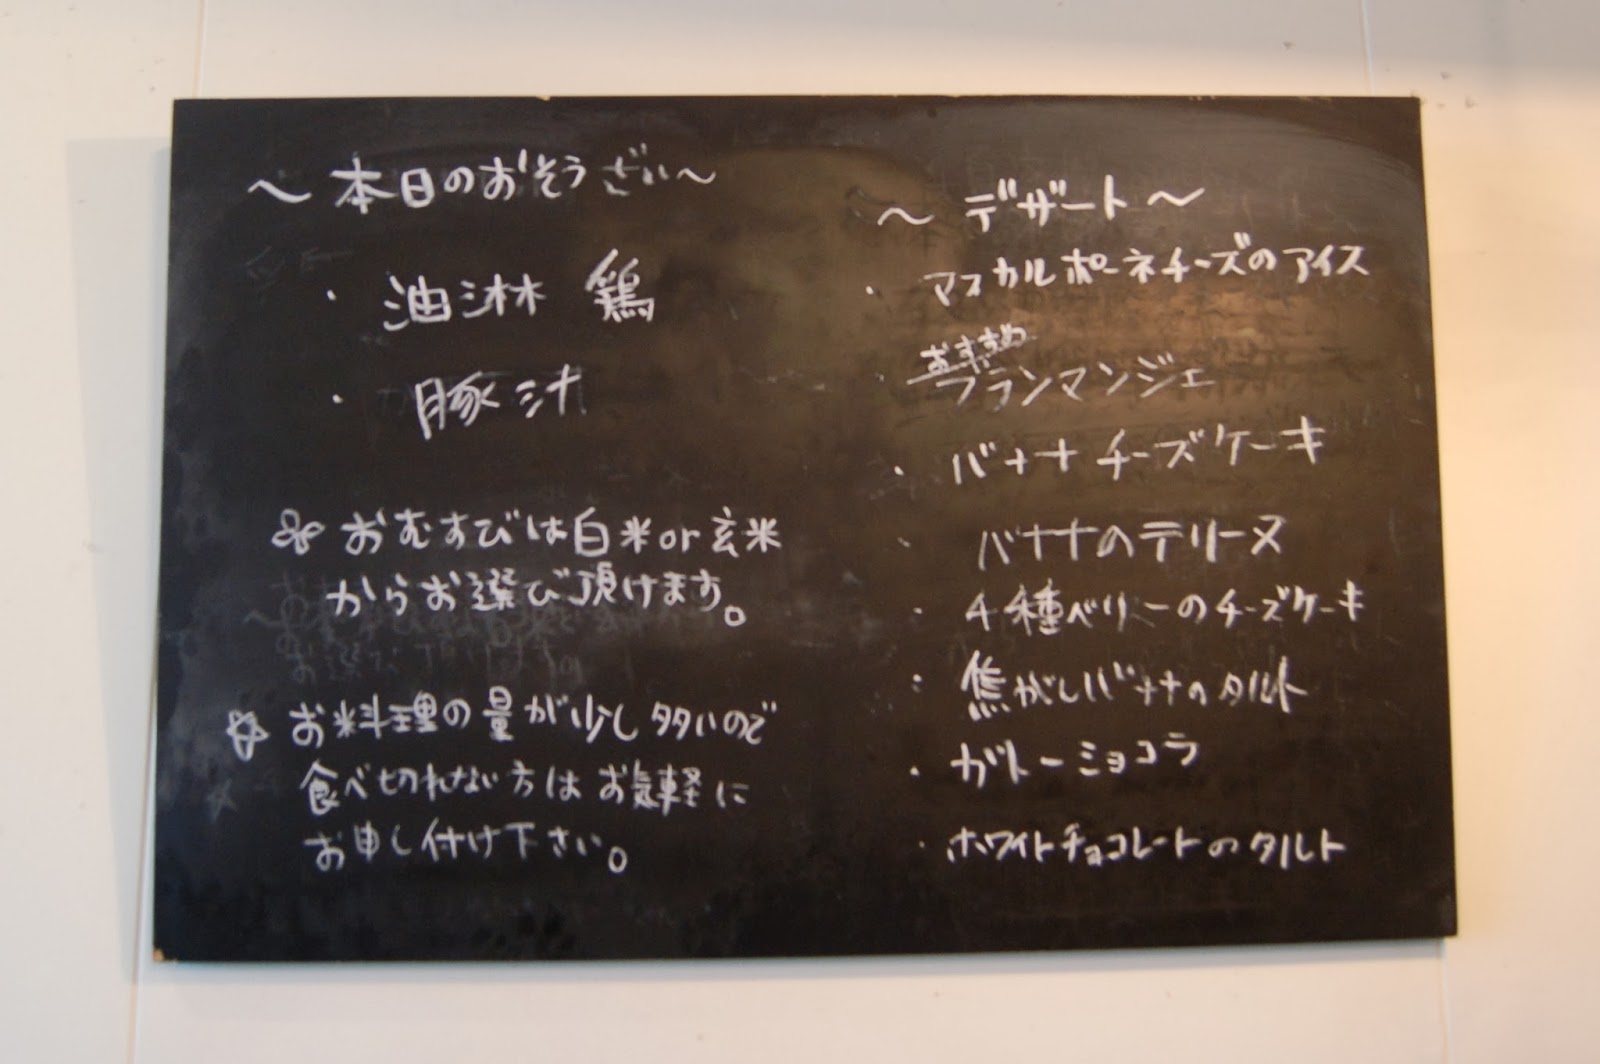 ～本日のおそうざい～
・油淋鶏
・豚汁
おむすびは白米or玄米
からお選び頂けます。
☆お料理の量が少し多いので
食べ切れない方はお気軽に
お申し付け下さい。
～デザート～
・マスカルポーネチーズのアイス
おすすめ
・ブランマンジェ
・バナナチーズケーキ
・バナナのテリーヌ
・4種ベリーのチーズケーキ
・焦がしバナナのタルト
・ガトーショコラ
・ホワイトチョコレートのタルト